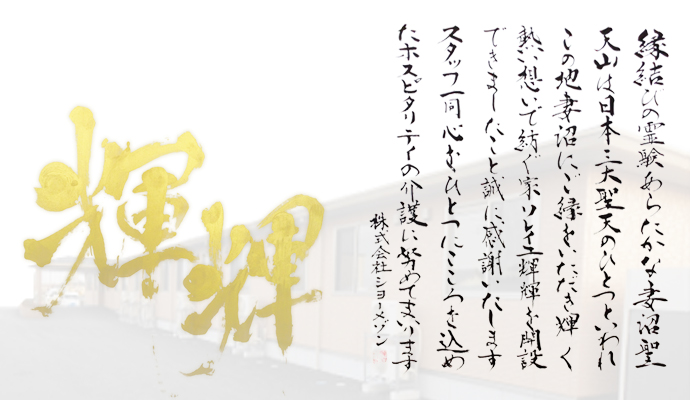 縁結びの霊験あらたかな妻沼聖
天山は日本三大聖天のひとつといわれ
この地妻沼にご縁をいただき輝く
熱い想いで紡ぐ家ソレイユ輝輝を開設
できましたこと誠に感謝いたします
スタッフ一同心もひとつにこころを込め
たホスピタリティの介護に努めてまいります
株式会社ショーメゾン
輝輝